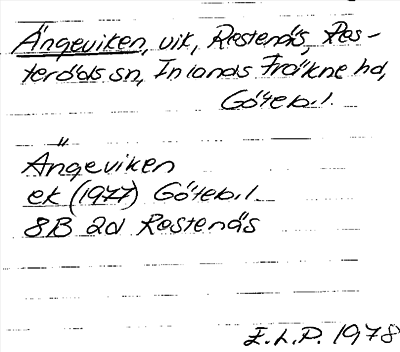 Ängeviken, vik, Restenäs, Res-
teröds sn, Inlands Fräkne hd,
Göteb. l.
Ängeviken
ek (1977) Göteb. l.
8B 2d Restenäs
E.L.P. 1978